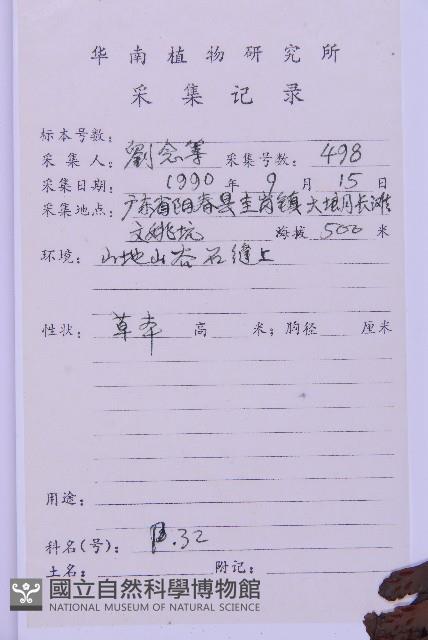 华南植物研究所
采集记录
标本号数：
采集人：劉念等 采集号数：498
采集日期：1990年9月15日
采集地点：广东省阳春县圭岗镇大垌长滩
坑 海拔 500 米
环境：山地山谷石缝上
性状：草本 高 米；胸径 厘米
用途：
科名(号)：P.32
土名： 附记：
國立自然科學博物館
NATIONAL MUSEUM OF NATURAL SCIENCE